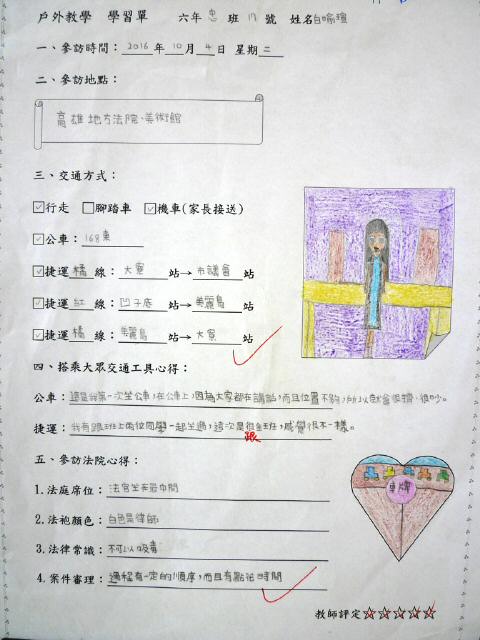 戶外教學 學習單 六年忠班17號 姓名白喻瑄
一、參訪時間：2016年10月4日 星期二
二、參訪地點：
高雄地方法院、美術館
三、交通方式：
☑行走 ☐腳踏車 ☑機車(家長接送)
☑公車：168東
☑捷運橘線：大寮站→市議會站
☑捷運紅線：凹子底站→美麗島站
☑捷運橘線：美麗島站→大寮站
四、搭乘大眾交通工具心得：
公車：這是我第一次坐公車，在公車上，因為大家都在講話，而且位置不夠，所以就會很擠、很吵。
捷運：我有跟班上兩位同學一起坐過，這次是很全班，感覺很不一樣。
跟
五、參訪法院心得：
車牌
1.法庭席位：法官坐在最中間
2.法袍顏色：白色是律師
3.法律常識：不可以吸毒
4.案件審理：過程有一定的順序，而且有點花時間
教師評定☆☆☆☆☆